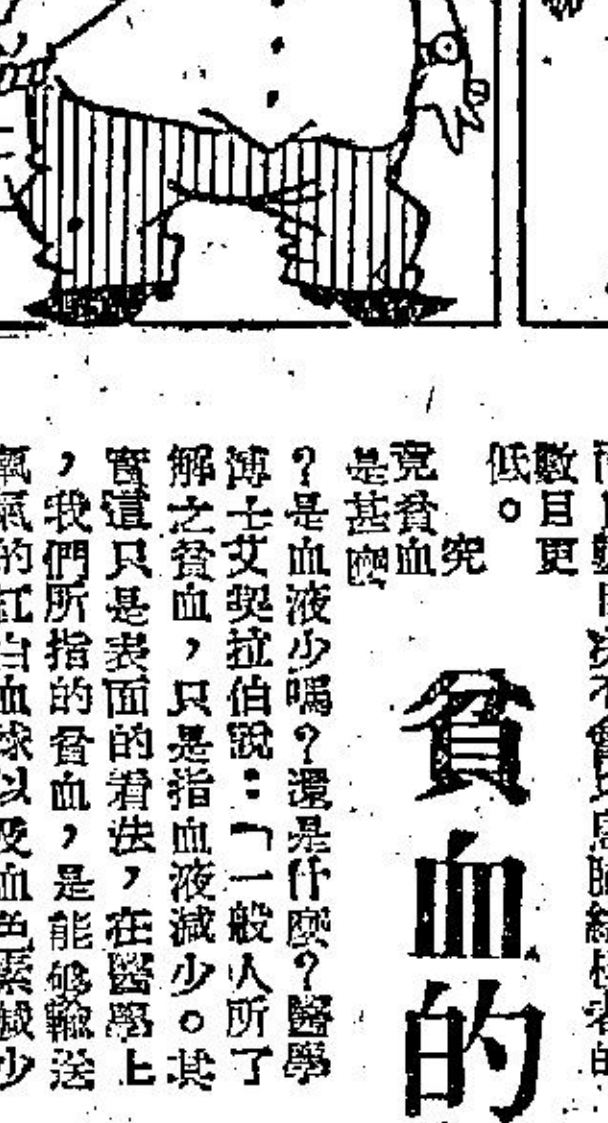 數目更
低。
貧血的
究
竟貧血
是甚麼
？是血液少嗎？還是什麼？醫學
博士艾契拉伯說：「一般人所了
解之貧血，只是指血液減少。其
實這只是表面的看法，在醫學上
，我們所指的貧血，是能够輸送
氧氣的紅白血球以及血色素減少